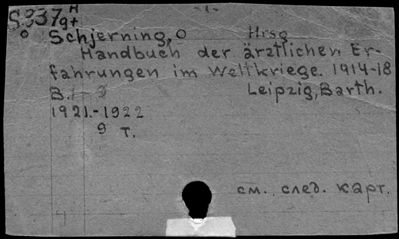 -1-
S.337 H
g+
Schjerning, O Hrsg
Handbuch der ärztlichen Er-
fahrungen im Weltkriege. 1914-18
B. 1- Leipzig, Barth.
1921.-1922
9 т.
см. след. карт.